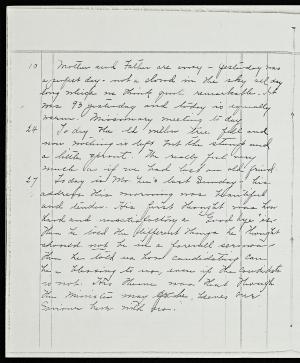 10 Mother and Father are away - yesterday was
a perfect day - not a cloud in the sky all day
long which we think quite remarkable. It
was 93 yesterday and today is equally
warm. Missionary meeting to day
24 To day the old willow tree fell and
now nothing is left but the stump and
a little sprout. We really feel very
much as if we had lost an old friend
27 Today is Mr 's last Sunday - his
address this morning was beautiful
and tender. His first thought was how
hard and unsatisfactory a "Good bye" is.
Then he told the different things he thought
should not be in a farewell sermon -
then he told us how candidating can
be a blessing to us, even if the candidate
is not. His theme was that though
the Minister may go, leaves our
Saviour here with us.